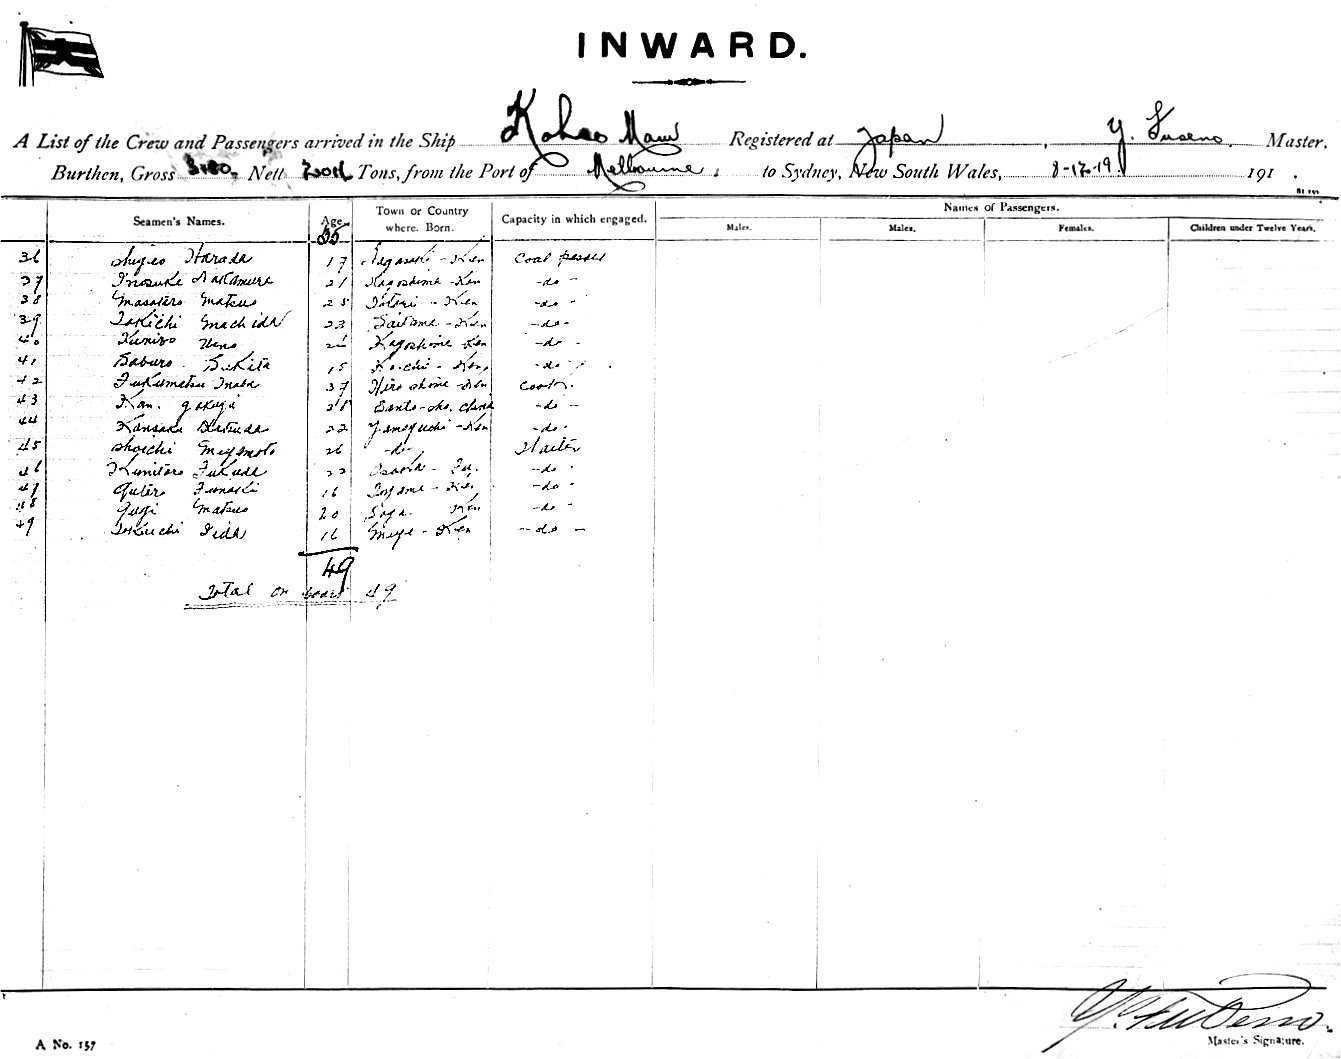 INWARD.
A List of the Crew and Passengers arrived in the Ship Maru Registered at Japan, Y. Master,
Burthen, Gross 3180 Nett Tons, from the Port of Melbourne, to Sydney, New South Wales, 8-12-19 191 .
Names of Passengers.
Seamen's Names. Age Town or Country where. Born. Capacity in which engaged. Males. Males. Females. Children under Twelve Years.
35
36 Harada 17 Nagasaki-Ken Coal passer
37 Inosuke Nakamura 21 Kagoshima-Ken -do-
38 Masataro Matsuo 25 -Ken -do-
39 Tokichi Machida 23 Saitama-Ken -do-
40 Ueno Kagoshima-Ken -do-
41 Saburo Sukita 15 Kochi-Ken -do-
42 Fukumatsu 37 Hiroshima-Ken Cook.
43 Kan. 28 Santo-sho. China -do-
44 22 Yamaguchi-Ken -do-
45 Shoichi Miyamoto 26 -do- Waiter
46 Kunitaro Fukuda 22 Osaka-Fu. -do-
47 16 Toyama-Ken -do-
48 Yuji Matsuo 20 Saga Ken -do-
49 Iida 16 -Ken -do-
49
Total on board 49
Master's Signature.
A No. 157